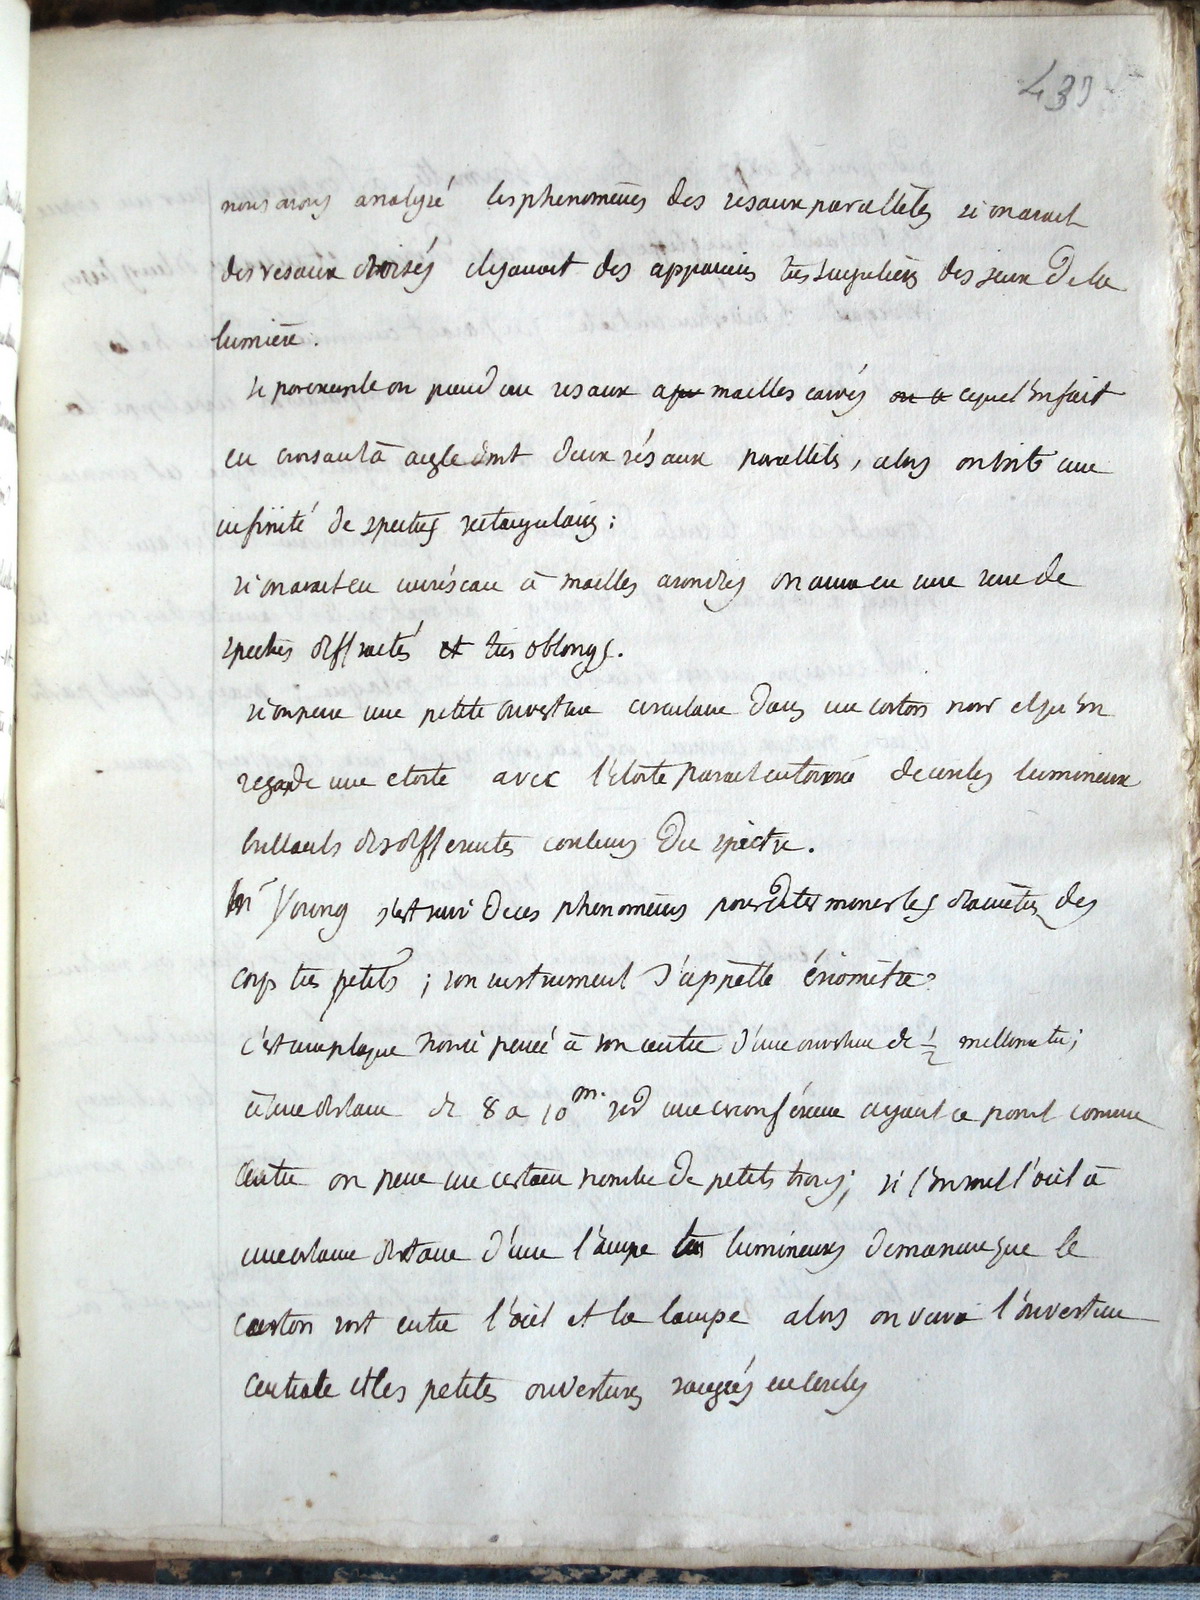 433
nous avons analysé les phenomènes des résaux parallèles si on avait
des résaux croisés il y aurait des apparences très singulières des jeux de la
lumière.
si par exemple on prend un resaux a maelles carrés ou a ce que l'on fait
en croisant à angle droit deux résaux parallèles, alors on voit une
infinité de spectres rectangulaires;
si on avait eu un réseau à mailles arondies on aura eu une
spectres diffractés et très oblongs.
si on perce une petite ouverture circulaire dans un carton noir et qu'on
regarde une etoile avec l'étoile parait entourrée de cercles lumineux
brillants des differentes couleurs du spectre.
Mr Young s'est servi de ces phenomènes pour determiner les diamètres des
corps très petits; son instrument s'appelle ériomètre
c'est une plaque noircie percée à son centre d'une ouverture de 1/2 millimetre;
à une distance de 8 a 10 m. sur une circonférence ayant ce point comme
centre on perce un certain nombre de petits trous; si l'on met l'oeil à
une certaine distance d'une lampe très lumineuse de maniere que le
carton soit entre l'oeil et la lampe alors on verra l'ouverture
centrale et les petites ouvertures rangées en cercles